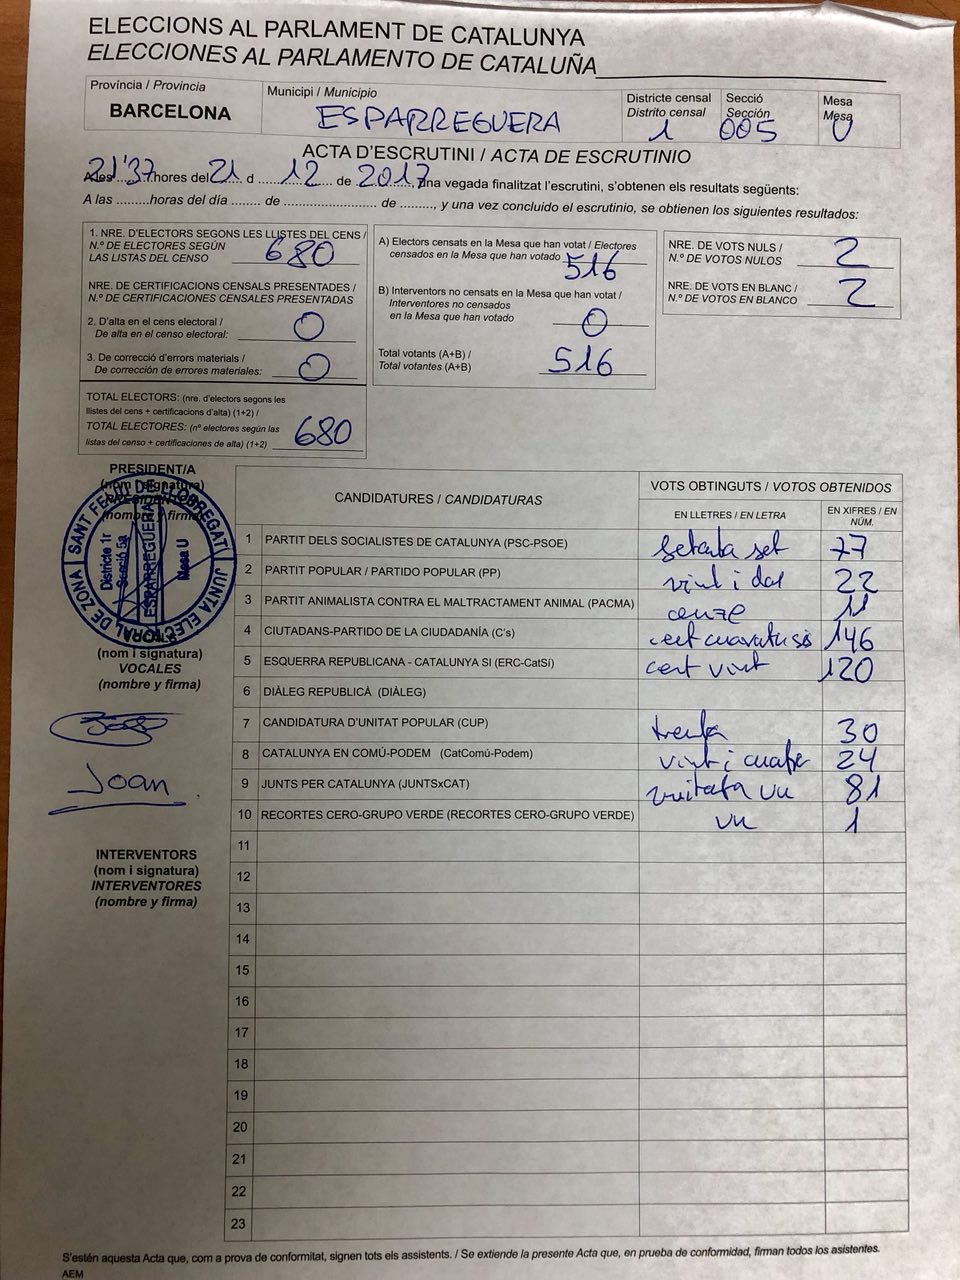 ELECCIONS AL PARLAMENT DE CATALUNYA
ELECCIONES AL PARLAMENTO DE CATALUÑA
Província / Provincia
BARCELONA
Municipi / Municipio
ESPARREGUERA
Districte censal
Distrito censal
1
Secció
Sección
005
Mesa
Mesa
U
ACTA D'ESCRUTINI / ACTA DE ESCRUTINIO
A les 21'37 hores del 21 d 12 de 2017, una vegada finalitzat l'escrutini, s'obtenen els resultats següents:
A las .........horas del día ....... de ........................ de ........., y una vez concluido el escrutinio, se obtienen los siguientes resultados:
1. NRE. D'ELECTORS SEGONS LES LLISTES DEL CENS /
N.º DE ELECTORES SEGÚN
LAS LISTAS DEL CENSO 680
NRE. DE CERTIFICACIONS CENSALS PRESENTADES /
N.º DE CERTIFICACIONES CENSALES PRESENTADAS
2. D'alta en el cens electoral /
De alta en el censo electoral: 0
3. De correcció d'errors materials /
De corrección de errores materiales: 0
TOTAL ELECTORS: (nre. d'electors segons les
llistes del cens + certificacions d'alta) (1+2) /
TOTAL ELECTORES: (nº electores según las
listas del censo + certificaciones de alta) (1+2) 680
A) Electors censats en la Mesa que han votat / Electores
censados en la Mesa que han votado 516
B) Interventors no censats en la Mesa que han votat /
Interventores no censados
en la Mesa que han votado 0
Total votants (A+B) /
Total votantes (A+B) 516
NRE. DE VOTS NULS /
N.º DE VOTOS NULOS 2
NRE. DE VOTS EN BLANC /
N.º DE VOTOS EN BLANCO 2
PRESIDENT/A
(nom i signatura)
(nombre y firma)
SANT FELIU DE LLOBREGAT
JUNTA ELECTORAL DE ZONA
Districte 1r
Secció 5a
ESPARREGUERA
Mesa U
(nom i signatura)
VOCALES
(nombre y firma)
Joan
INTERVENTORS
(nom i signatura)
INTERVENTORES
(nombre y firma)
CANDIDATURES / CANDIDATURAS
VOTS OBTINGUTS / VOTOS OBTENIDOS
EN LLETRES / EN LETRA
EN XIFRES / EN NÚM.
1 PARTIT DELS SOCIALISTES DE CATALUNYA (PSC-PSOE) setanta set 77
2 PARTIT POPULAR / PARTIDO POPULAR (PP) vint i dos 22
3 PARTIT ANIMALISTA CONTRA EL MALTRACTAMENT ANIMAL (PACMA) onze 11
4 CIUTADANS-PARTIDO DE LA CIUDADANÍA (C's) cent 146
5 ESQUERRA REPUBLICANA - CATALUNYA SI (ERC-CatSí) cent vint 120
6 DIÀLEG REPUBLICÀ (DIÀLEG)
7 CANDIDATURA D'UNITAT POPULAR (CUP) trenta 30
8 CATALUNYA EN COMÚ-PODEM (CatComú-Podem) vint i cuatre 24
9 JUNTS PER CATALUNYA (JUNTSxCAT) vuitata vu 81
10 RECORTES CERO-GRUPO VERDE (RECORTES CERO-GRUPO VERDE) vu 1
11
12
13
14
15
16
17
18
19
20
21
22
23
S'estén aquesta Acta que, com a prova de conformitat, signen tots els assistents. / Se extiende la presente Acta que, en prueba de conformidad, firman todos los asistentes.
AEM